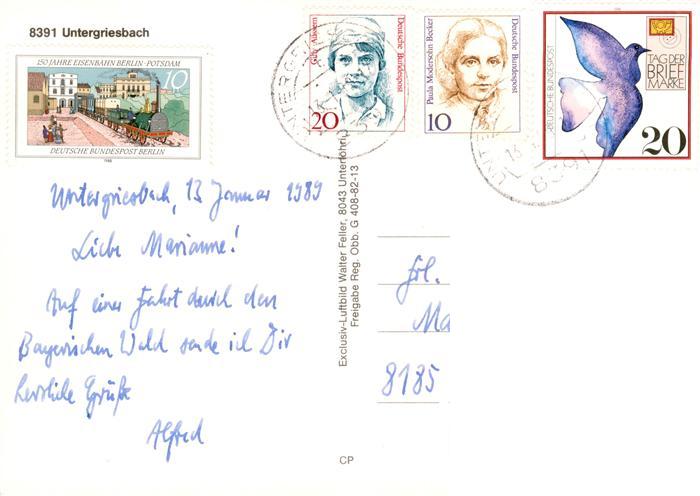 8391 Untergriesbach
150 JAHRE EISENBAHN BERLIN-POTSDAM
10
DEUTSCHE BUNDESPOST BERLIN
20
Deutsche Bundespost
10
Paula Modersohn-Becker
Deutsche Bundespost
DEUTSCHE BUNDESPOST
TAG DER
BRIEF
MARKE
20
8391
Untergriesbach, 13 Januar 1989
Liebe Marianne!
Auf einer Fahrt durch den
Bayerischen Wald sende ich Dir
herzliche Grüße
Alfred
Exclusiv-Luftbild Walter Feller, 8043 Unterföhring
Freigabe Reg. Obb. G 408-82-13
CP
Frl.
Ma
8185